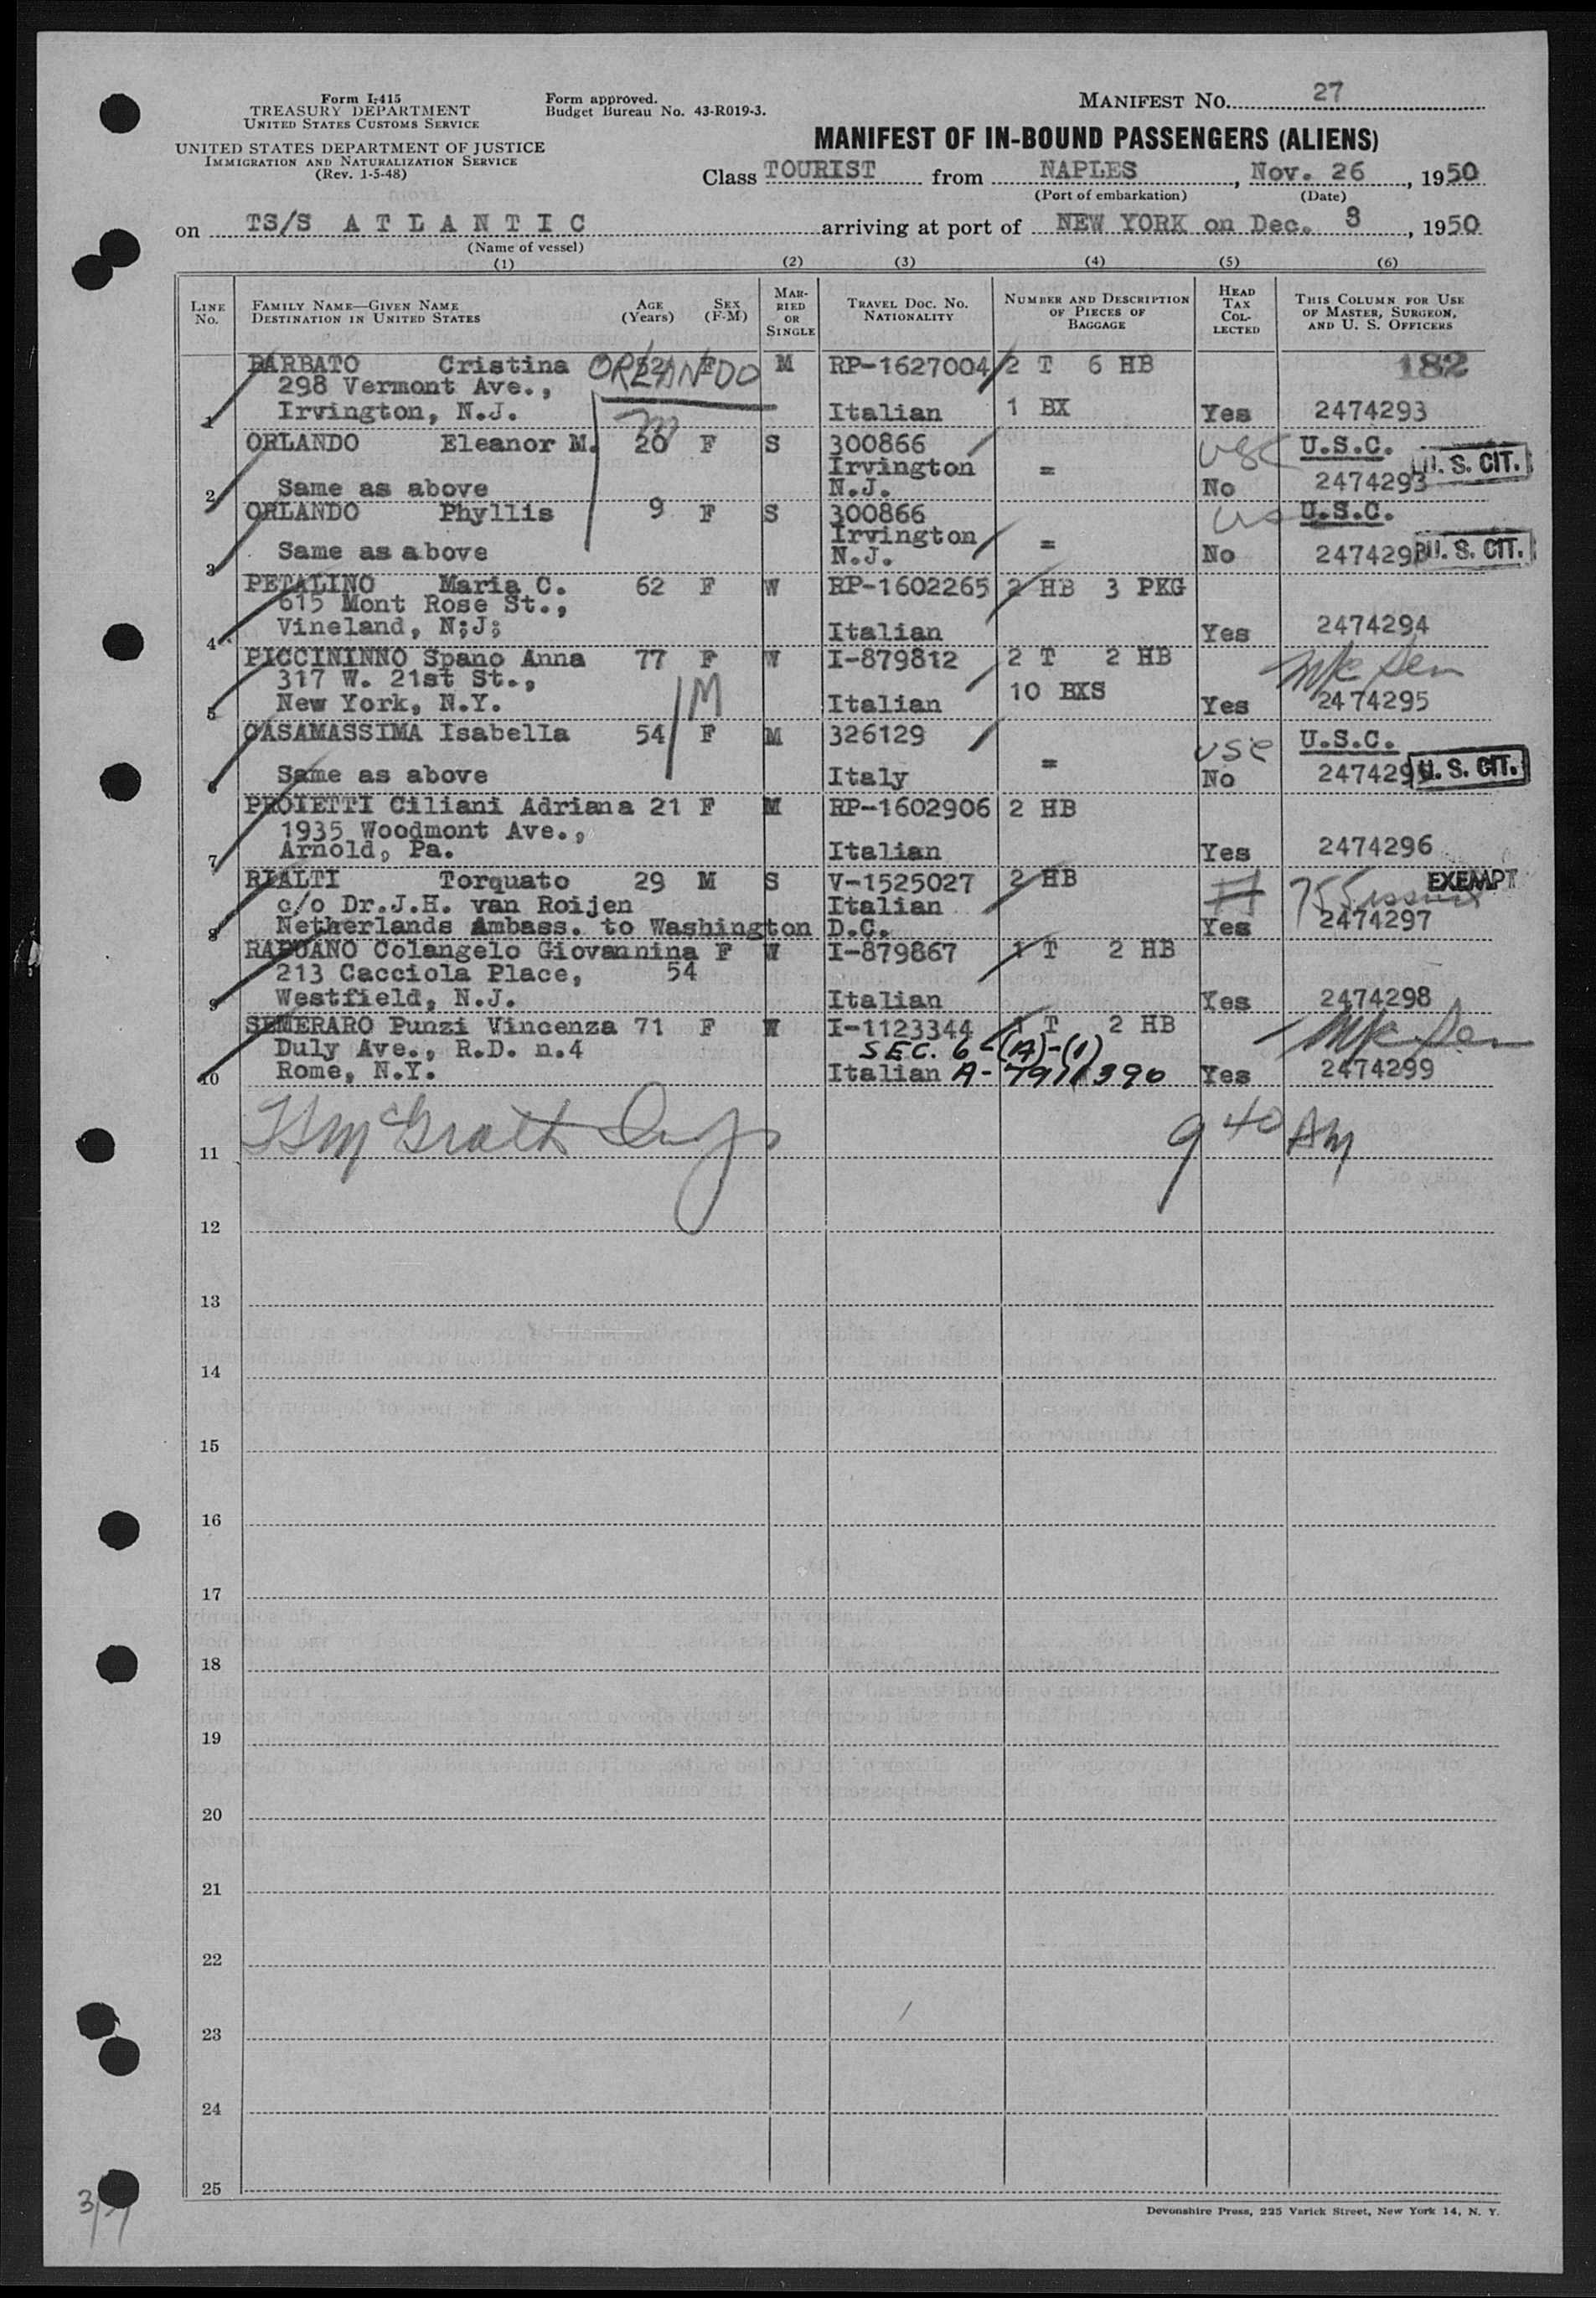 Form I-415
TREASURY DEPARTMENT
UNITED STATES CUSTOMS SERVICE
UNITED STATES DEPARTMENT OF JUSTICE
IMMIGRATION AND NATURALIZATION SERVICE
(Rev. 1-5-48)
Form approved.
Budget Bureau No. 43-R019-3.
MANIFEST No. 27
MANIFEST OF IN-BOUND PASSENGERS (ALIENS)
Class TOURIST from NAPLES, Nov. 26, 1950
(Port of embarkation) (Date)
on TS/S A T L A N T I C arriving at port of NEW YORK on Dec. 8, 1950
(Name of vessel)
(1) (2) (3) (4) (5) (6)
LINE No. FAMILY NAME—GIVEN NAME DESTINATION IN UNITED STATES AGE (Years) SEX (F-M) MARRIED OR SINGLE TRAVEL DOC. NO. NATIONALITY NUMBER AND DESCRIPTION OF PIECES OF BAGGAGE HEAD TAX COLLECTED THIS COLUMN FOR USE OF MASTER, SURGEON, AND U. S. OFFICERS
BARBATO Cristina ORLANDO F M RP-1627004 2 T 6 HB 182
298 Vermont Ave.,
1 Irvington, N.J. Italian 1 BX Yes 2474293
ORLANDO Eleanor M. M 20 F S 300866 USC U.S.C.
Irvington = U. S. CIT.
2 Same as above N.J. No 2474293
ORLANDO Phyllis 9 F S 300866 U.S.C.
Irvington
3 Same as above N.J. = No 2474293 U. S. CIT.
PETALINO Maria C. 62 F W RP-1602265 2 HB 3 PKG
615 Mont Rose St.,
4 Vineland, N;J; Italian Yes 2474294
PICCININNO Spano Anna 77 F W I-879812 2 T 2 HB
317 W. 21st St., M
5 New York, N.Y. Italian 10 BXS Yes 2474295
CASAMASSIMA Isabella 54 F M 326129 = USC U.S.C.
6 Same as above Italy No 2474295 U. S. CIT.
PROIETTI Ciliani Adriana 21 F M RP-1602906 2 HB
1935 Woodmont Ave.,
7 Arnold, Pa. Italian Yes 2474296
RIALTI Torquato 29 M S V-1525027 2 HB EXEMPT
c/o Dr.J.H. van Roijen Italian
8 Netherlands Ambass. to Washington D.C. Yes 2474297
RAPUANO Colangelo Giovannina F W I-879867 1 T 2 HB
213 Cacciola Place, 54
9 Westfield, N.J. Italian Yes 2474298
SEMERARO Punzi Vincenza 71 F W I-1123344 1 T 2 HB
Duly Ave., R.D. n.4 SEC. 6-(A)-(1)
10 Rome, N.Y. Italian A- Yes 2474299
11 McGrath Insp 9 40 AM
12
13
14
15
16
17
18
19
20
21
22
23
24
25
Devonshire Press, 225 Varick Street, New York 14, N. Y.